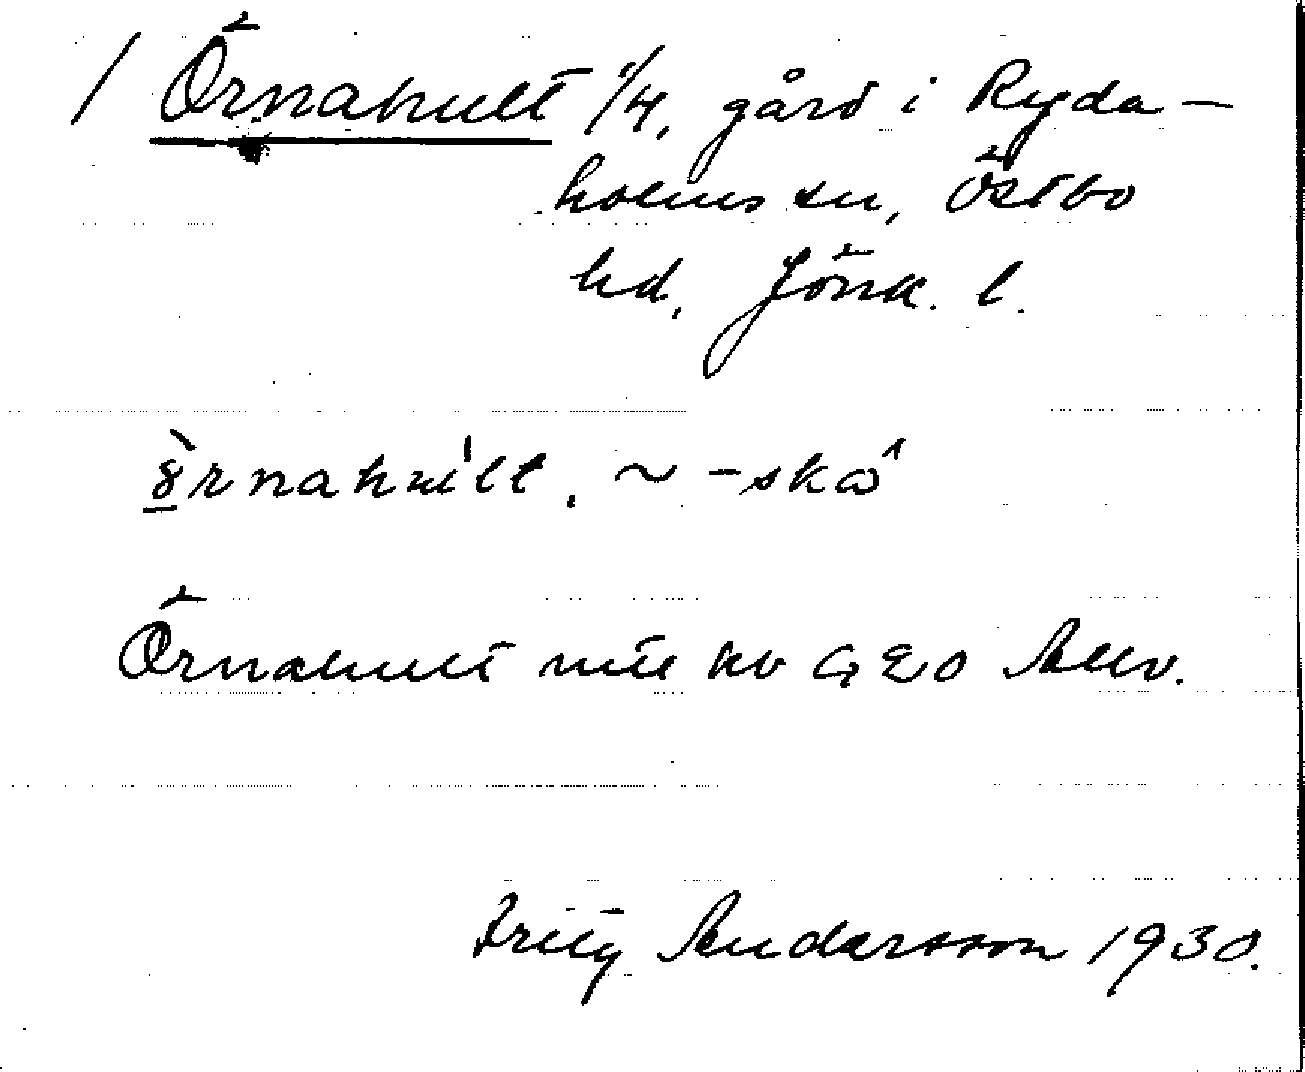 / Örnahult 1/4, gård i Ryda-
holms sn, Östbo
hd, Jönk. l.
ö̀rnahúlt. ~ -skó
Örnahult mtl kb GEO Allv.
Fritz Andersson 1930.